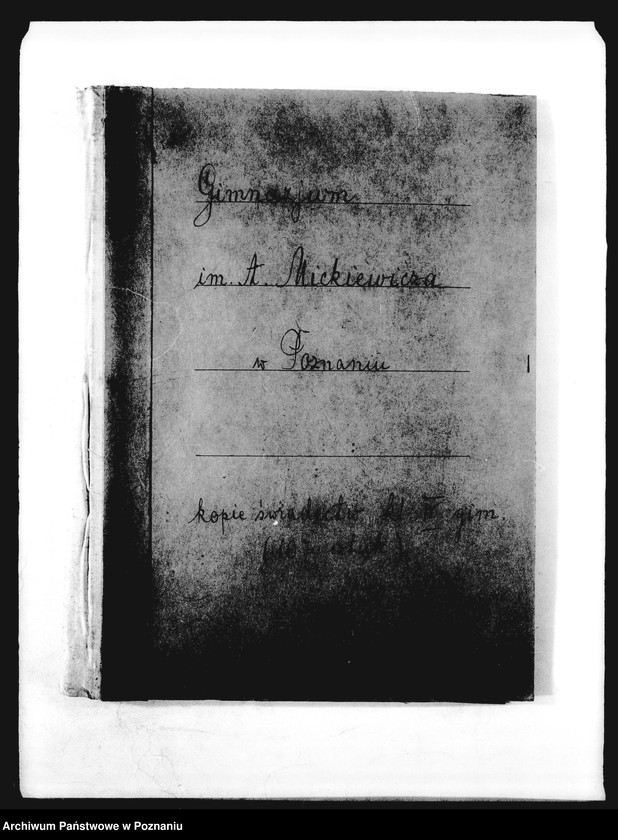 Gimnazjum
im. A. Mickiewicza
w Poznaniu
kopie świadectw kl. gim.
Archiwum Państwowe w Poznaniu